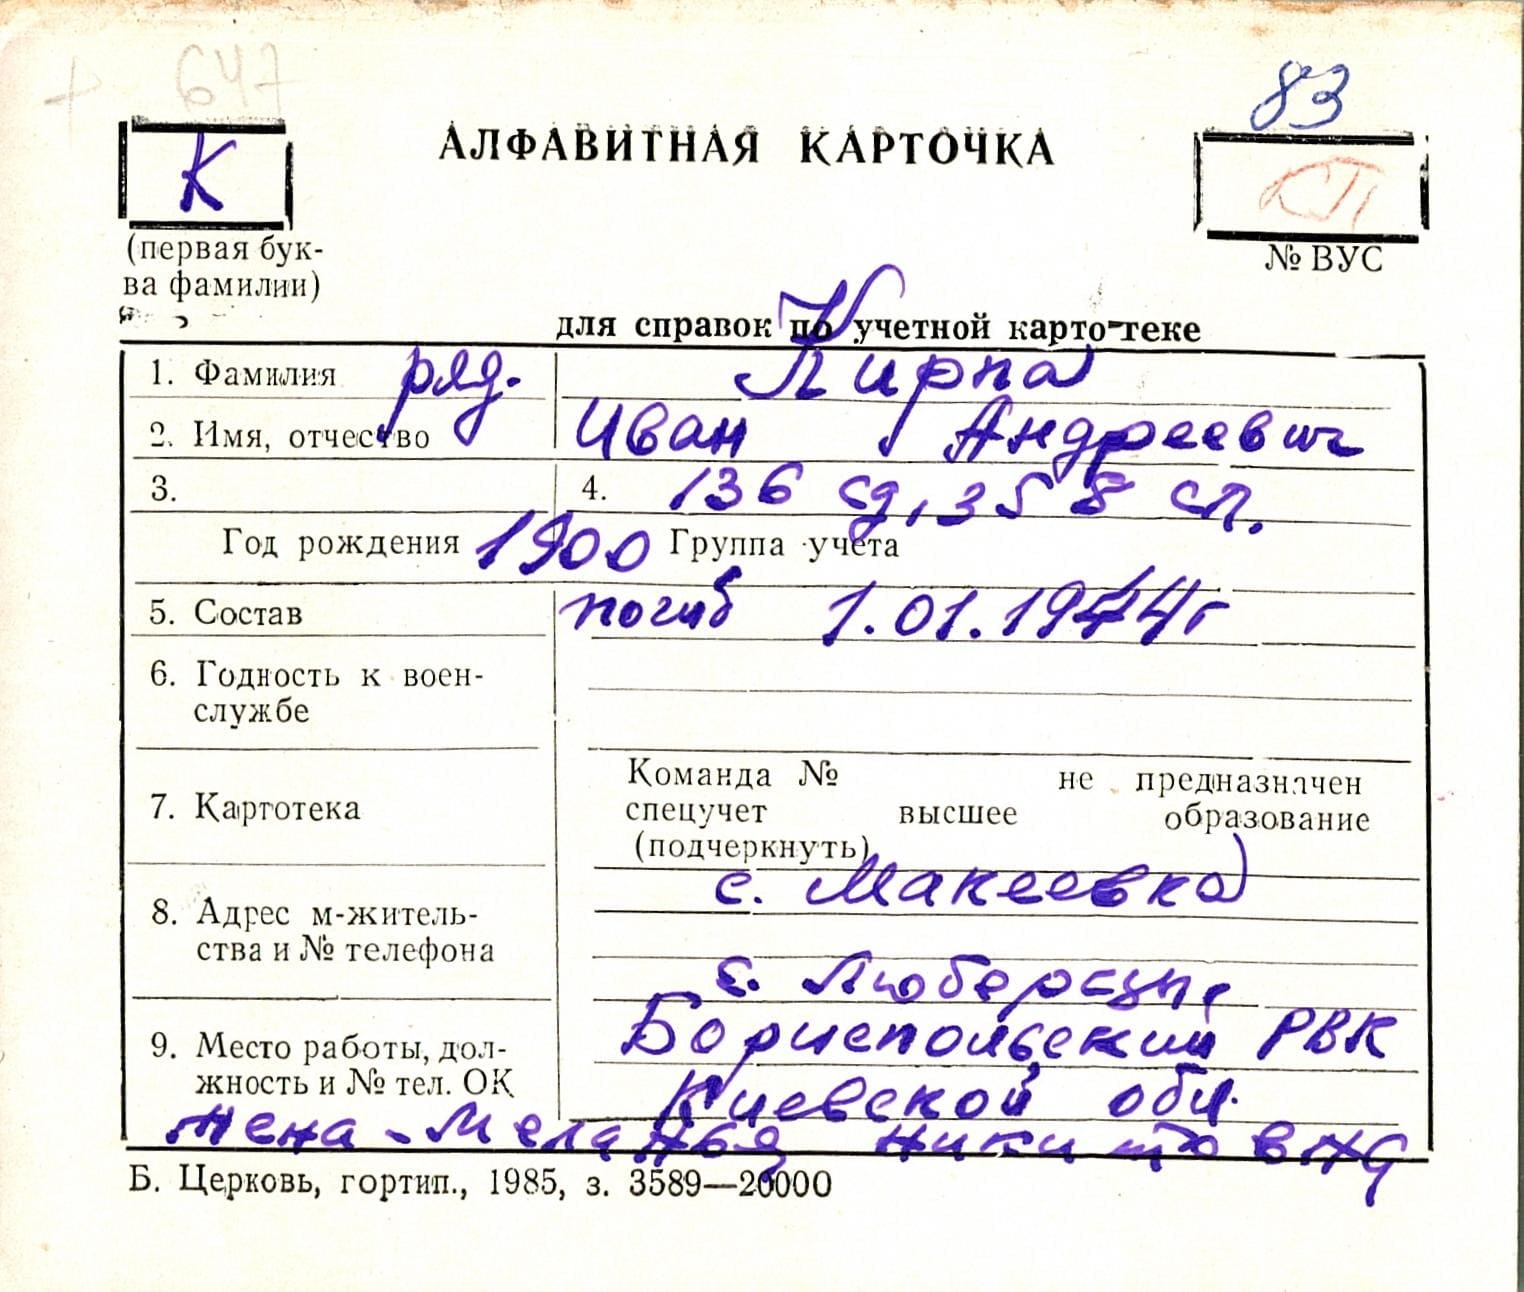 647
83
К
АЛФАВИТНАЯ КАРТОЧКА
КП
(первая бук-
ва фамилии)
№ ВУС
для справок по учетной карто-теке
1. Фамилия ряд. Кирпа
2. Имя, отчество Иван Андреевич
3. 4. 136 сд, 358 сп.
Год рождения 1900 Группа учета
5. Состав погиб 1.01.1944г
6. Годность к воен-
службе
7. Картотека
Команда № не предназначен
спецучет высшее образование
(подчеркнуть)
8. Адрес м-житель-
ства и № телефона
с. Макеевка
с. Люберцы,
9. Место работы, дол-
жность и № тел. ОК
Бориспольский РВК
Киевской обл.
жена - Меланья Никитовна
Б. Церковь, гортип., 1985, з. 3589—20000